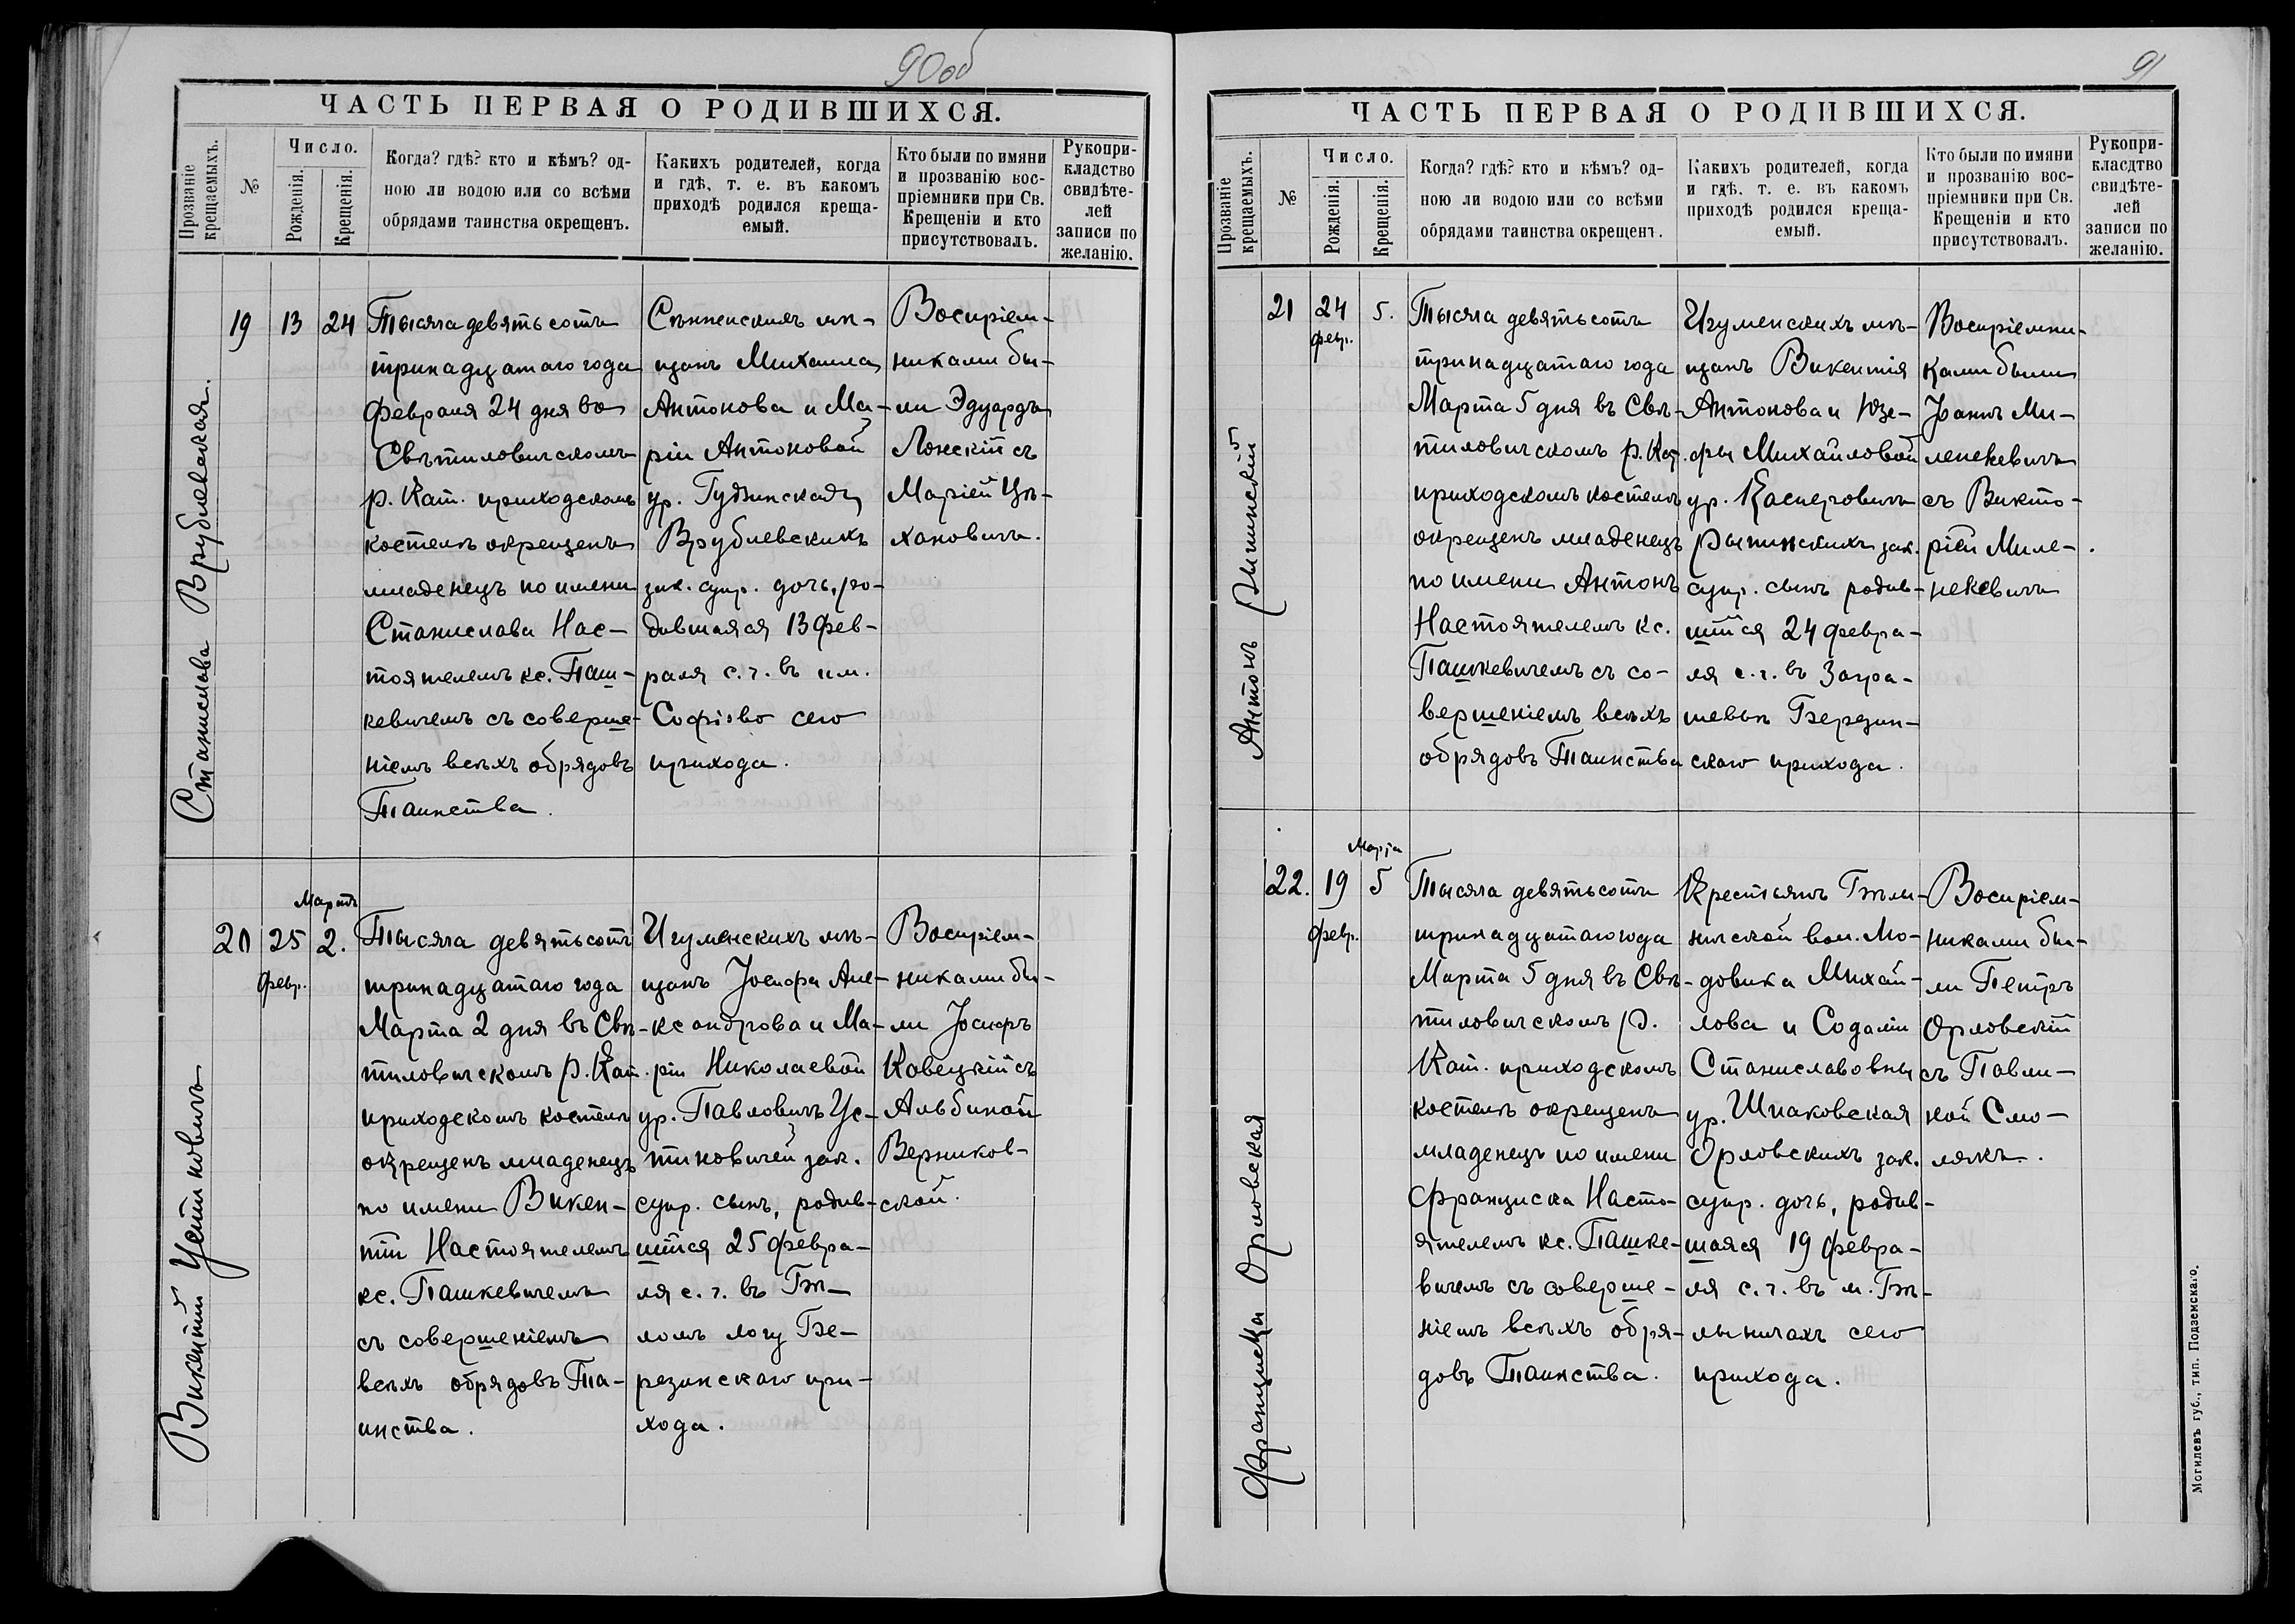 90об
ЧАСТЬ ПЕРВАЯ О РОДИВШИХСЯ.
Прозваніе крещаемыхъ.
№
Число.
Рожденія.
Крещенія.
Когда? гдѣ? кто и кѣмъ? од-
ною ли водою или со всѣми
обрядами таинства окрещенъ.
Какихъ родителей, когда
и гдѣ, т. е. въ какомъ
приходѣ родился креща-
емый.
Кто были по имяни
и прозванію вос-
пріемники при Св.
Крещеніи и кто
присутствовалъ.
Рукопри-
кладство
свидѣте-
лей
записи по
желанію.
Станислава Врублевская.
19
13
24
Тысяча девятьсотъ
тринадцатаго года
февраля 24 дня во
Свѣтиловичскомъ
р. Кат. приходскомъ
костелѣ окрещенъ
младенецъ по имени
Станислава Нас-
тоятелемъ кс. Паш-
кевичемъ съ соверше-
ніемъ всѣхъ обрядовъ
Таинства.
Сѣнненскихъ мѣ-
щанъ Михаила
Антонова и Ма-
ріи Антоновой
ур. Гудзинская
Врублевскихъ
зак. супр. дочь, ро-
дившаяся 13 фев-
раля с. г. въ им.
Софіево сего
прихода.
Воспріем-
никами бы-
ли Эдуардъ
Лонскій съ
Маріей Цѣ-
хановичъ.
Викентій Устиновичъ
20
25
февр.
Мартъ
2.
Тысяча девятьсотъ
тринадцатаго года
Марта 2 дня въ Свѣ-
тиловичскомъ р. Кат.
приходскомъ костелѣ
окрещенъ младенецъ
по имени Викен-
тій Настоятелемъ
кс. Пашкевичемъ
съ совершеніемъ
всѣхъ обрядовъ Та-
инства.
Игуменскихъ мѣ-
щанъ Іосифа Але-
ксандрова и Ма-
ріи Николаевой
ур. Павловичъ Ус-
тиновичей зак.
супр. сынъ, родив-
шійся 25 февра-
ля с. г. въ Бѣ-
ломъ логу Бе-
резинскаго при-
хода.
Воспріем-
никами бы-
ли Іосифъ
Ковецкій съ
Альбиной
Верников-
ской.
91
ЧАСТЬ ПЕРВАЯ О РОДИВШИХСЯ.
Прозваніе крещаемыхъ.
№
Число.
Рожденія.
Крещенія.
Когда? гдѣ? кто и кѣмъ? од-
ною ли водою или со всѣми
обрядами таинства окрещенъ.
Какихъ родителей, когда
и гдѣ, т. е. въ какомъ
приходѣ родился креща-
емый.
Кто были по имяни
и прозванію вос-
пріемники при Св.
Крещеніи и кто
присутствовалъ.
Рукопри-
класдтво
свидѣте-
лей
записи по
желанію.
Антонъ Рыпинскій
21
24
февр.
5.
Тысяча девятьсотъ
тринадцатаго года
Марта 5 дня въ Свѣ-
тиловичскомъ р. Кат.
приходскомъ костелѣ
окрещенъ младенецъ
по имени Антонъ
Настоятелемъ кс.
Пашкевичемъ съ со-
вершеніемъ всѣхъ
обрядовъ Таинства
Игуменскихъ мѣ-
щанъ Викентія
Антонова и Юзе-
фы Михайловой
ур. Касперовичъ
Рыпинскихъ зак.
супр. сынъ родив-
шійся 24 февра-
ля с. г. въ Загра-
шевьѣ Березин-
скаго прихода.
Воспріемни-
ками были
Іоанъ Ми-
ленкевичъ
съ Викто-
ріей Миле-
некевичъ
Франциска Орловская
22.
19
февр.
Марта
5
Тысяча девятьсотъ
тринадцатаго года
Марта 5 дня въ Свѣ-
тиловичскомъ р.
Кат. приходскомъ
костелѣ окрещенъ
младенецъ по имени
Франциска Насто-
ятелемъ кс. Пашке-
вичемъ съ соверше-
ніемъ всѣхъ обря-
довъ Таинства.
Крестьянъ Бѣлы-
ничской вол. Мо-
довика Михай-
лова и Содаліи
Станиславовны
ур. Шпаковская
Орловскихъ зак.
супр. дочь, родив-
шаяся 19 февра-
ля с. г. въ м. Бѣ-
лыничахъ сего
прихода.
Воспріем-
никами бы-
ли Петръ
Орловскій
съ Павли-
ной Смо-
лякъ.
Могилевъ губ., тип. Подземскаго.